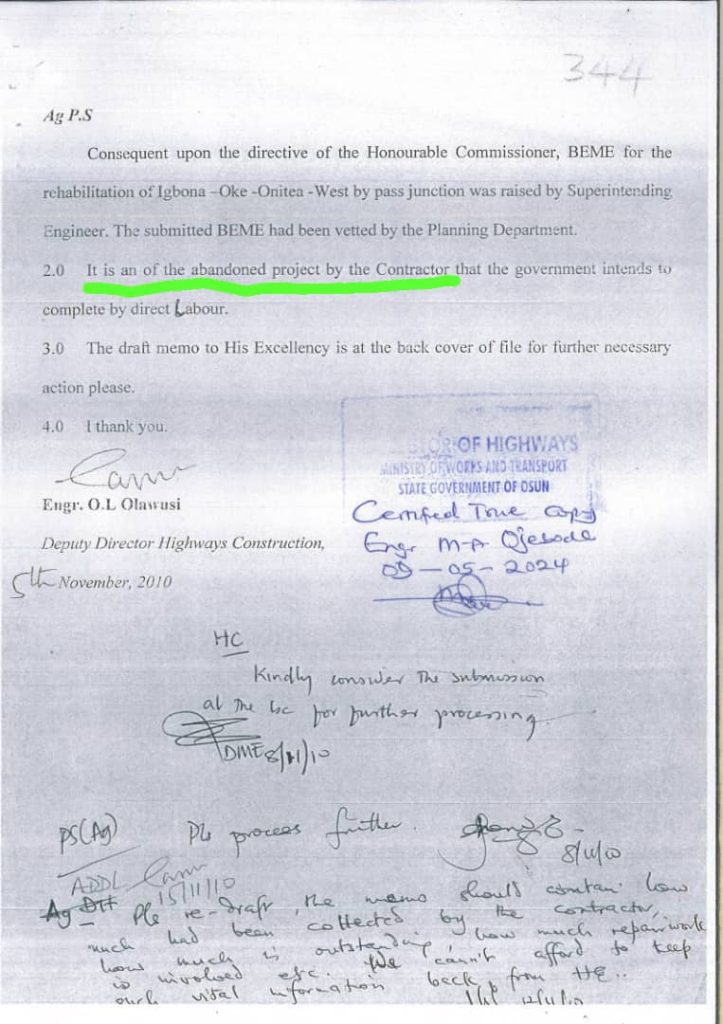 344
Ag P.S
Consequent upon the directive of the Honourable Commissioner, BEME for the
rehabilitation of Igbona –Oke -Onitea -West by pass junction was raised by Superintending
Engineer. The submitted BEME had been vetted by the Planning Department.
2.0 It is an of the abandoned project by the Contractor that the government intends to
complete by direct Labour.
3.0 The draft memo to His Excellency is at the back cover of file for further necessary
action please.
4.0 I thank you.
OF HIGHWAYS
MINISTRY OF WORKS AND TRANSPORT
STATE GOVERNMENT OF OSUN
Certified True Copy
Engr M-A Ojebode
09-05-2024
Engr. O.L Olawusi
Deputy Director Highways Construction,
5th November, 2010
HC
Kindly consider the submission
at the bc for further processing.
DME 8/11/10
PS(Ag) Pls process further.
8/11/10
ADDL
15/11/10
Ag Pls re-draft, the memo should contain how
much had been collected by the contractor,
how much is outstanding, how much repair work
is involved etc. We cannot afford to keep
such vital information back from HE..
12/11/10